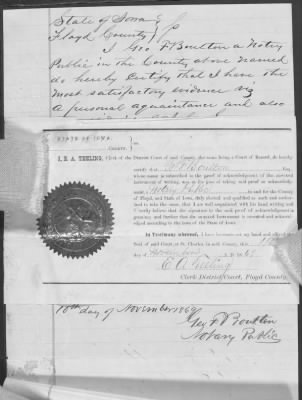 State of Iowa
Floyd County } ss
I Geo F Boulton a Notary
Public in the County above named
do hereby Certify that I have the
most satisfactory evidence viz
A personal aquaintance and also
STATE OF IOWA,
County.
I, E. A. TEELING, Clerk of the District Court of said county, the same being a Court of Record, do hereby
certify that G F Boulton Esq.
whose name is subscribed to the proof of acknowledgment of the annexed
instrument of writing, was at the time of taking said proof or acknowledgment
Notary Public in and for the County
of Floyd, and State of Iowa, duly elected and qualified as such and authorized
to take the same, that I am well acquainted with his hand writing and
verily believe that the signature to the said proof of acknowledgment is
genuine, and further that the annexed instrument is executed and acknowledged
according to the laws of the State of Iowa.
In Testimony whereof, I have hereunto set my hand and affixed the
Seal of said Court, at St. Charles, in said County, this 10th
day of November A. D. 1869
E. A. Teeling
Clerk District Court, Floyd County.
10th day of November 1869
Geo F Boulton
Notary Public